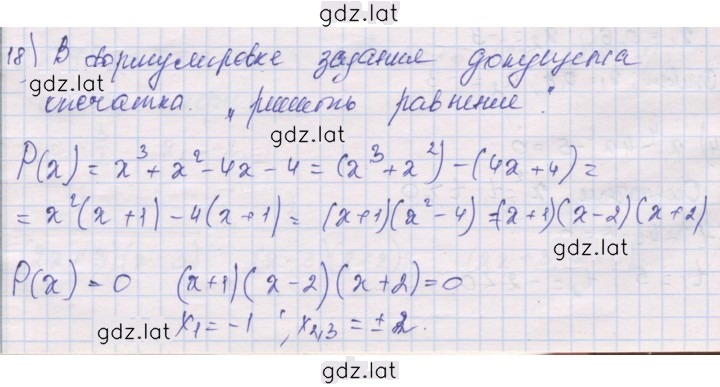 gdz.lat
18) В формулировке задания допущена
gdz.lat
опечатка. „решить равнение".
gdz.lat
P(x) = x³ + x² - 4x - 4 = (x³ + x²) - (4x + 4) =
= x²(x + 1) - 4(x + 1) = (x + 1)(x² - 4) = (x + 1)(x - 2)(x + 2)
gdz.lat
P(x) = 0 (x + 1)(x - 2)(x + 2) = 0
gdz.lat
x₁ = -1 ; x₂,₃ = ± 2.
gdz.lat